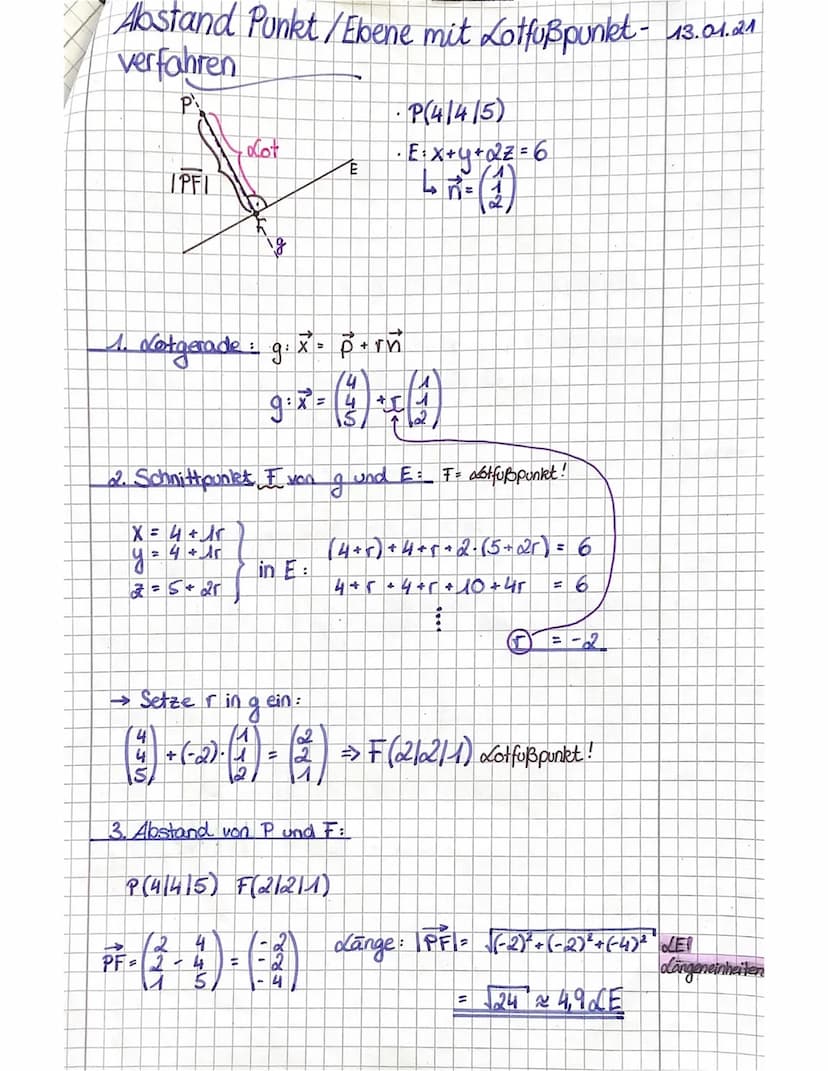 Abstand Punkt/Ebene mit Lotfußpunkt- 13.01.21
verfahren
P
Lot
|PF|
E
F
g
· P(4/4/5)
· E: x+y+2z = 6
↳ n⃗ = (1 1 2)
1. Lotgerade: g: x⃗ = p⃗ + rn⃗
g: x⃗ = (4 4 5) + r (1 1 2)
2. Schnittpunkt F von g und E: F = Lotfußpunkt!
x = 4 + 1r
y = 4 + 1r
z = 5 + 2r
in E:
(4+r)+4+r+2·(5+2r) = 6
4+r+4+r+10+4r = 6
⋮
r = -2
→ Setze r in g ein:
(4 4 5) + (-2)·(1 1 2) = (2 2 1) ⇒ F(2/2/1) Lotfußpunkt!
3. Abstand von P und F:
P(4/4/5) F(2/2/1)
PF⃗ = (2 - 4 2 - 4 1 - 5) = (-2 -2 -4) Länge: |PF⃗| = √(-2)²+(-2)²+(-4)² LE!
Längeneinheiten
= √24 ≈ 4,9 LE